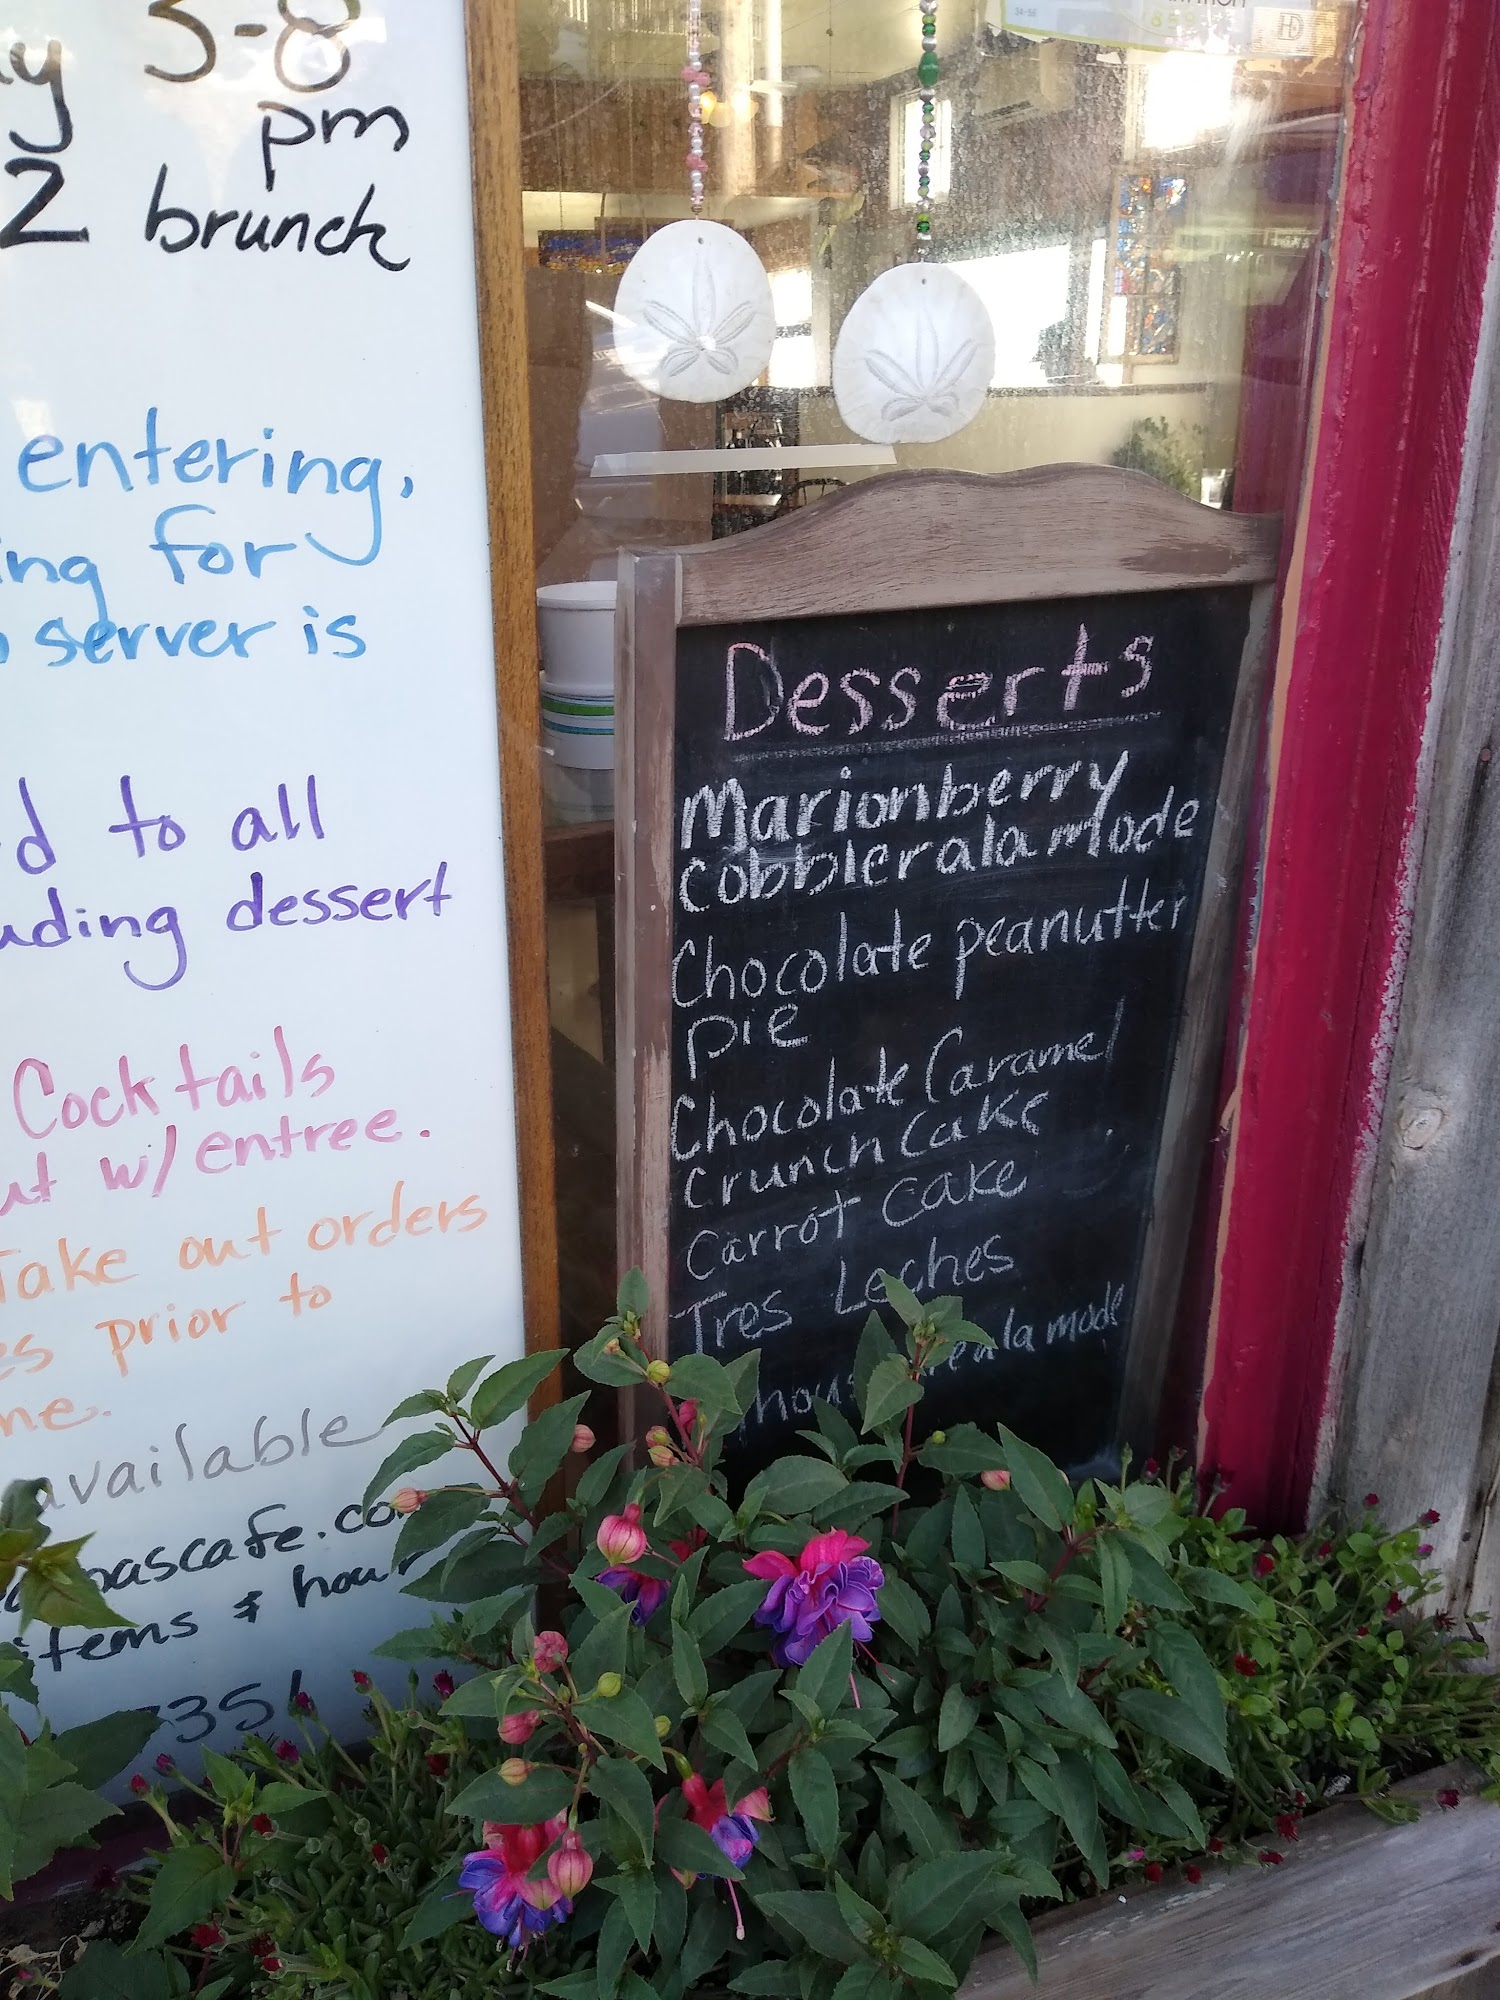 5-8
pm
2 brunch
entering,
ing for
server is
d to all
uding dessert
Cocktails
ut w/entree.
Take out orders
es prior to
me.
available
pascafe.co
items & hour
735
Desserts
Marionberry
Cobbler ala mode
Chocolate peanutter
pie
Chocolate Caramel
Crunch Cake
Carrot Cake
Tres Leches
ala mode